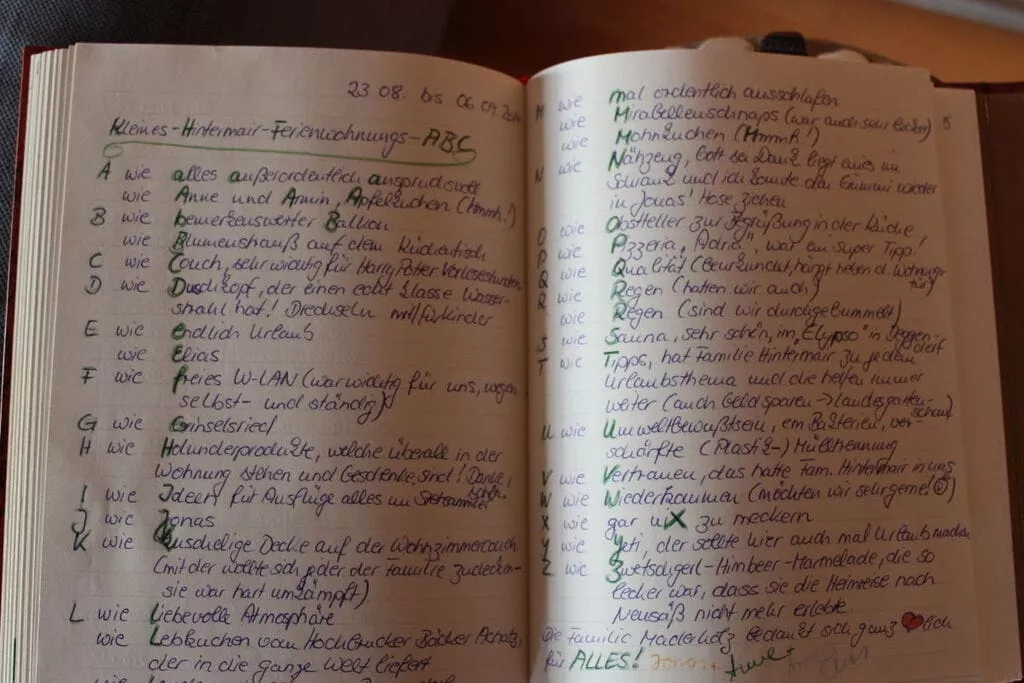 23 08. bis 06 09.
Kleines-Hintermair-Ferienwohnungs-ABC
A wie alles außerordentlich anspruchsvoll
wie Anne und Armin, Apfelkuchen (Hmmh!)
B wie bemerkenswerter Balkon
wie Blumenstrauß auf dem Küchentisch
C wie Couch, sehr wichtig für Harry Potter Vorlesestunden
D wie Duschkopf, der einen echt klasse Wasser-
strahl hat! Drechseln mit/für Kinder
E wie endlich Urlaub
wie Elias
F wie freies W-LAN (war wichtig für uns, wegen
selbst- und ständig)
G wie Grinselsried
H wie Holunderprodukte, welche überall in der
Wohnung stehen und Geschenke sind! Danke
schön.
I wie Ideen für Ausflüge alles im
J wie Jonas
K wie kuschelige Decke auf der Wohnzimmercouch
(mit der wollte sich jeder der Familie zudecken-
sie war hart umkämpft)
L wie liebevolle Atmosphäre
wie Lebkuchen vom Hochbrucker Bäcker
der in die ganze Welt liefert
M wie mal ordentlich ausschlafen
wie Mirabellenschnaps (war auch sehr lecker)
wie Mohnkuchen (Hmmh!)
N wie Nähzeug, Gott sei Dank liegt eines im
Schrank und ich konnte den Gummi wieder
in Jonas' Hose ziehen
O wie Obstteller zur Begrüßung in der Küche
P wie Pizzeria „Adria", war ein super Tipp!
Q wie Qualität (Beurkundet, hängt neben d. Wohnungs-
tür)
R wie Regen (hatten wir auch)
wie Regen (sind wir durchgebummelt)
S wie Sauna, sehr schön, im „Elypso" in Deggen-
dorf
T wie Tipps, hat Familie Hintermair zu jedem
Urlaubsthema und die helfen immer
weiter (auch Geld sparen -> Landesgarten-
schau)
U wie Umweltbewußtsein, ein Bakterien, ver-
schärfte (Plastik-) Mülltrennung
V wie Vertrauen, das hatte Fam. Hintermair in uns
W wie Wiederkommen (möchten wir sehr gerne! ☺)
X wie gar niX zu meckern
Y wie Yeti, der sollte hier auch mal Urlaub machen
Z wie Zwetschgerl-Himbeer-Marmelade, die so
lecker war, dass sie die Heimreise nach
Neusäß nicht mehr erlebte.
Die Familie Maderholz bedankt sich ganz ❤lich
für ALLES! Jonas +